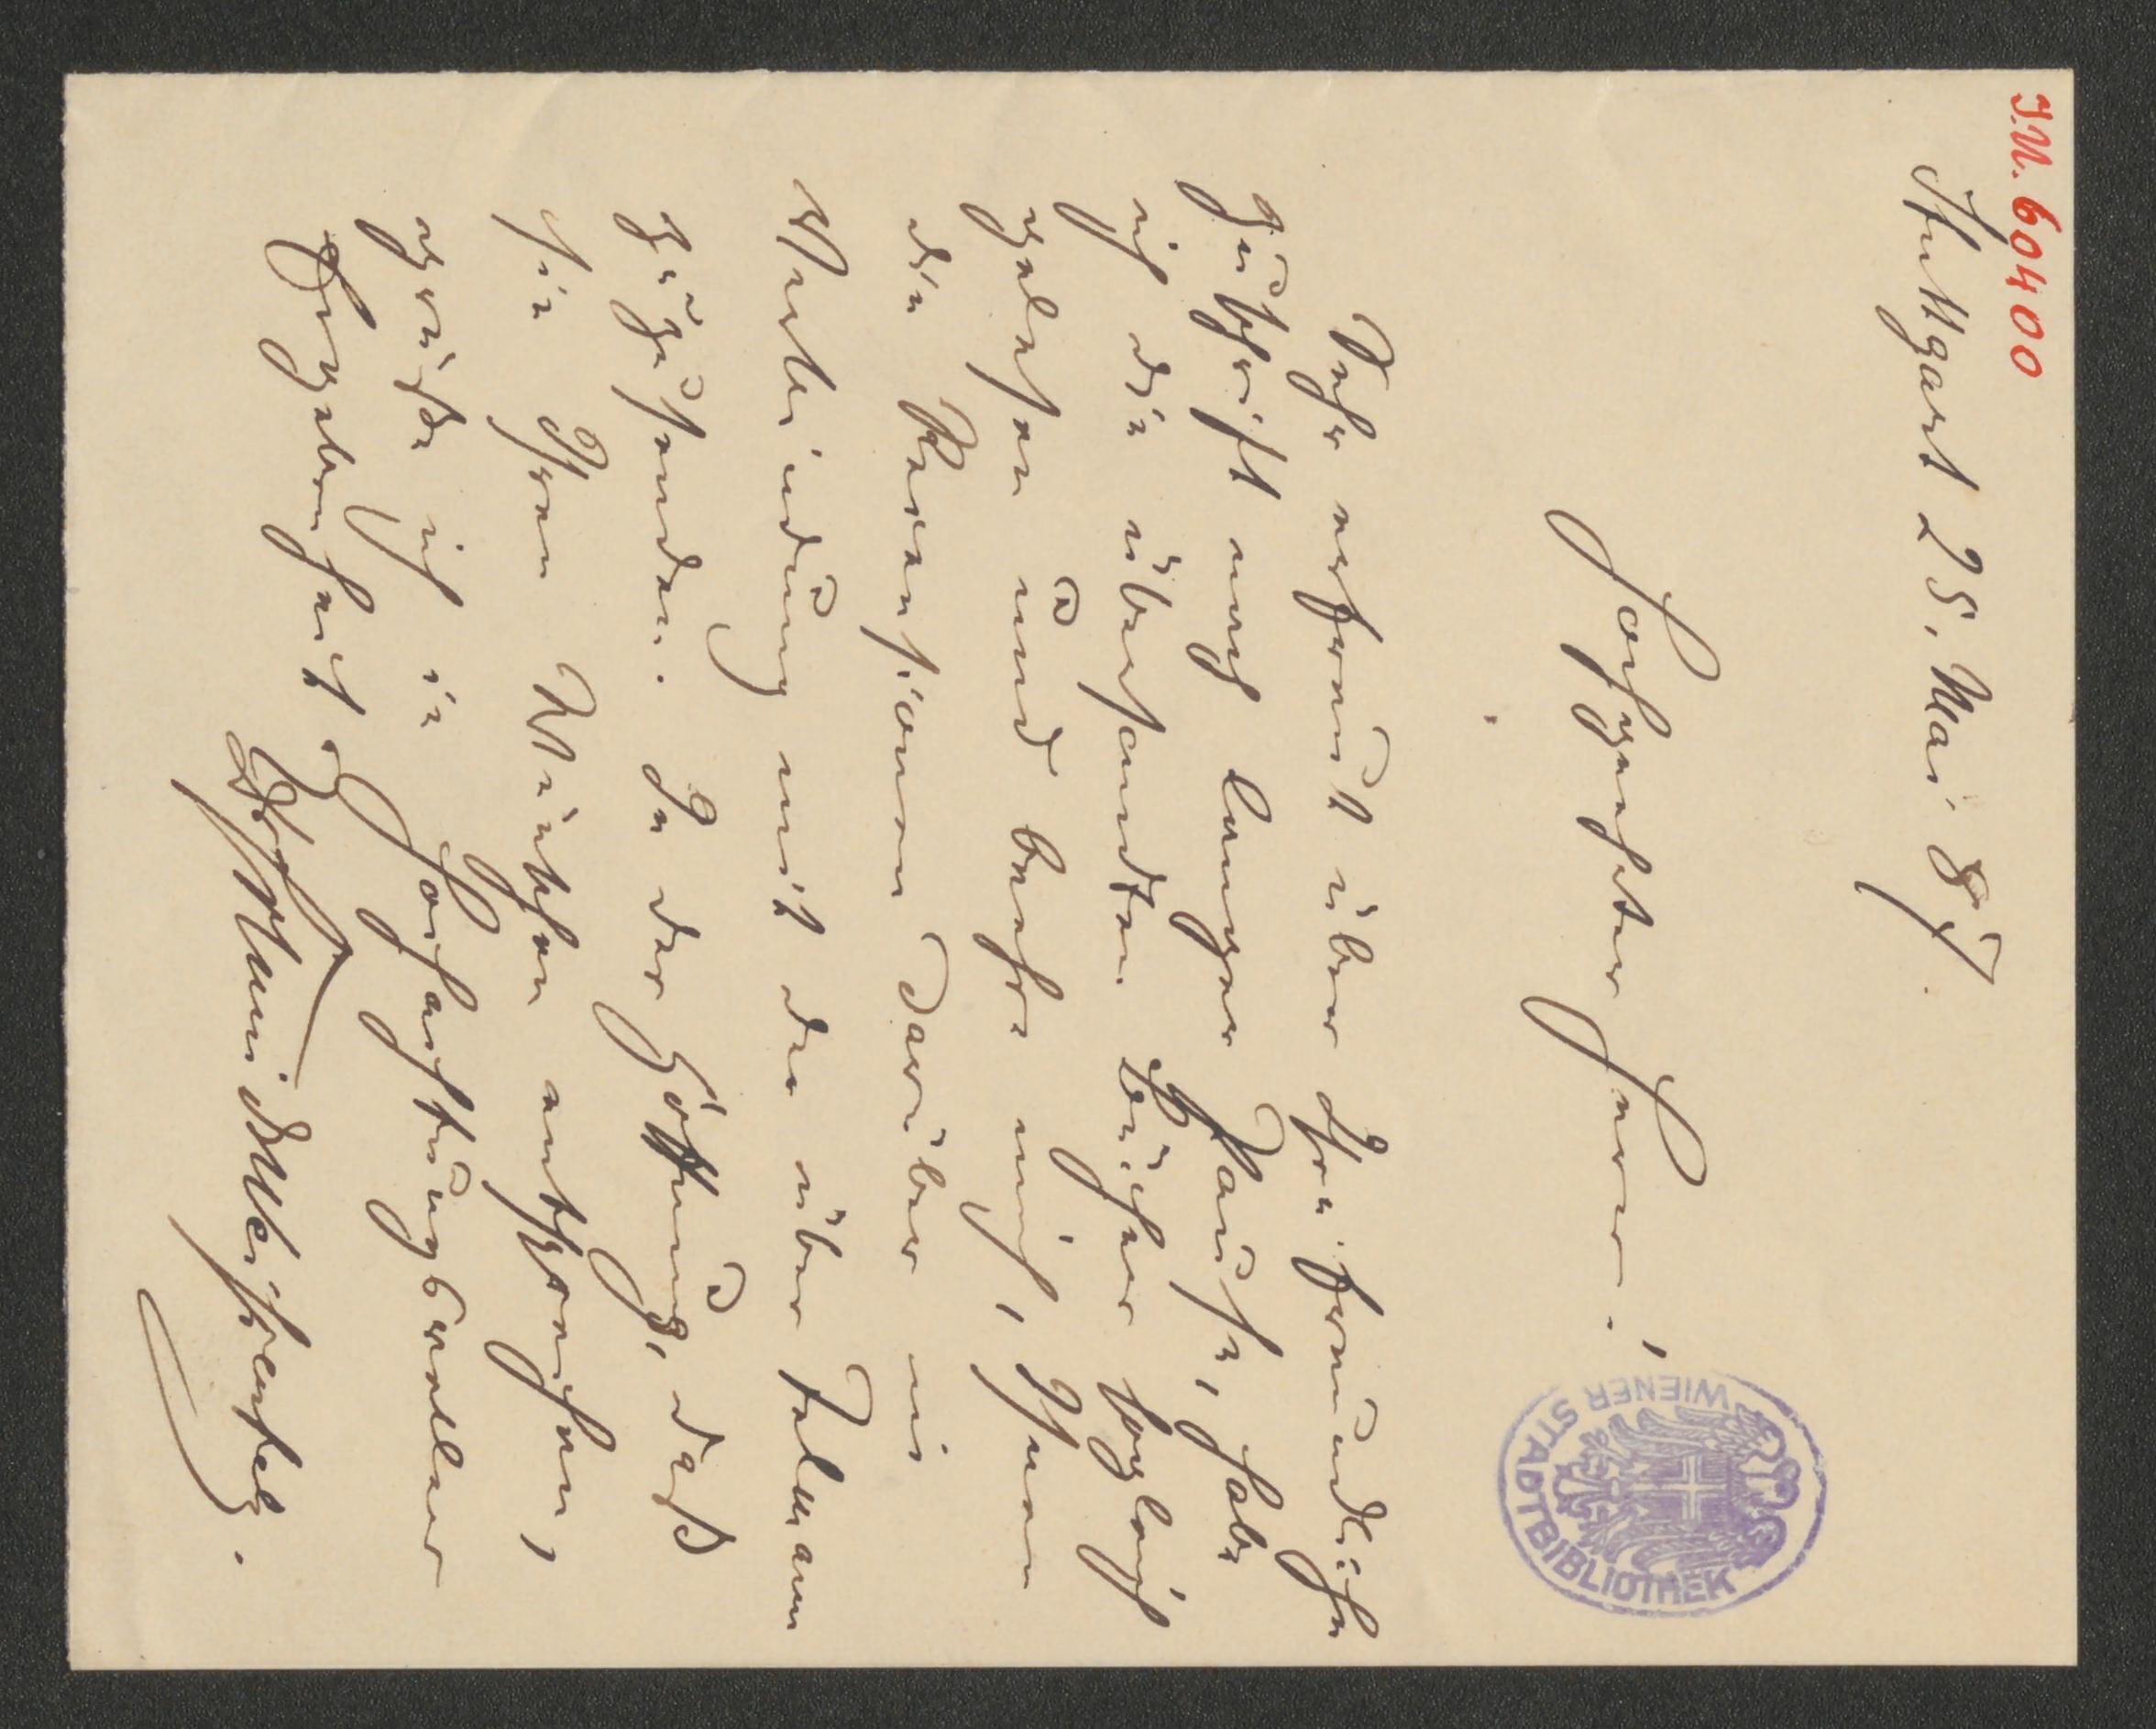 I.N. 60400
Stuttgart 25. Mai 87.
Hochgeehrter Herr!
Sehr erfreut über Ihre freundliche
Zuschrift nach langer Pause, habe
ich die übersandten Bücher sogleich
gelesen und beehre mich, Ihnen
die Rezensionen darüber in
Verbindung mit der über
zuzusenden. In der Hoffnung, daß
sie Ihren Wünschen entsprechen,
grüße ich in Hochachtungsvoller
Ergebenheit
WIENER STADTBIBLIOTHEK